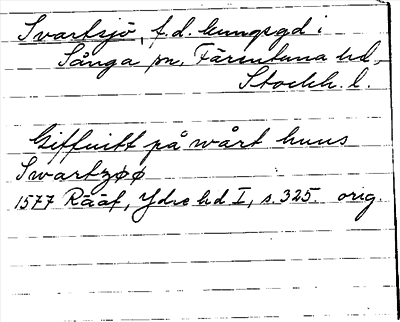 Svartsjö, f.d. kungsgd i
Sånga sn, Färentuna hd,
Stockh. l.
Giffuitt på wårt huus
Swartzøø
1577 Rääf, Ydre hd I, s. 325. orig.